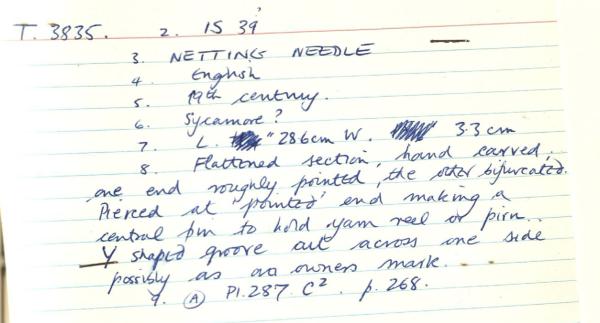 T. 3835. 2. IS 39?
3. NETTING NEEDLE
4. English
5. 19th century.
6. Sycamore?
7. L. " 28.6cm W. 3.3 cm
8. Flattened section, hand carved,
one end roughly pointed, the other bifurcated.
Pierced at 'pointed' end making a
central pin to hold yarn reel or pirn.
Y shaped groove cut across one side
possibly as an owners mark.
9. (A) Pl. 287. C². p. 268.